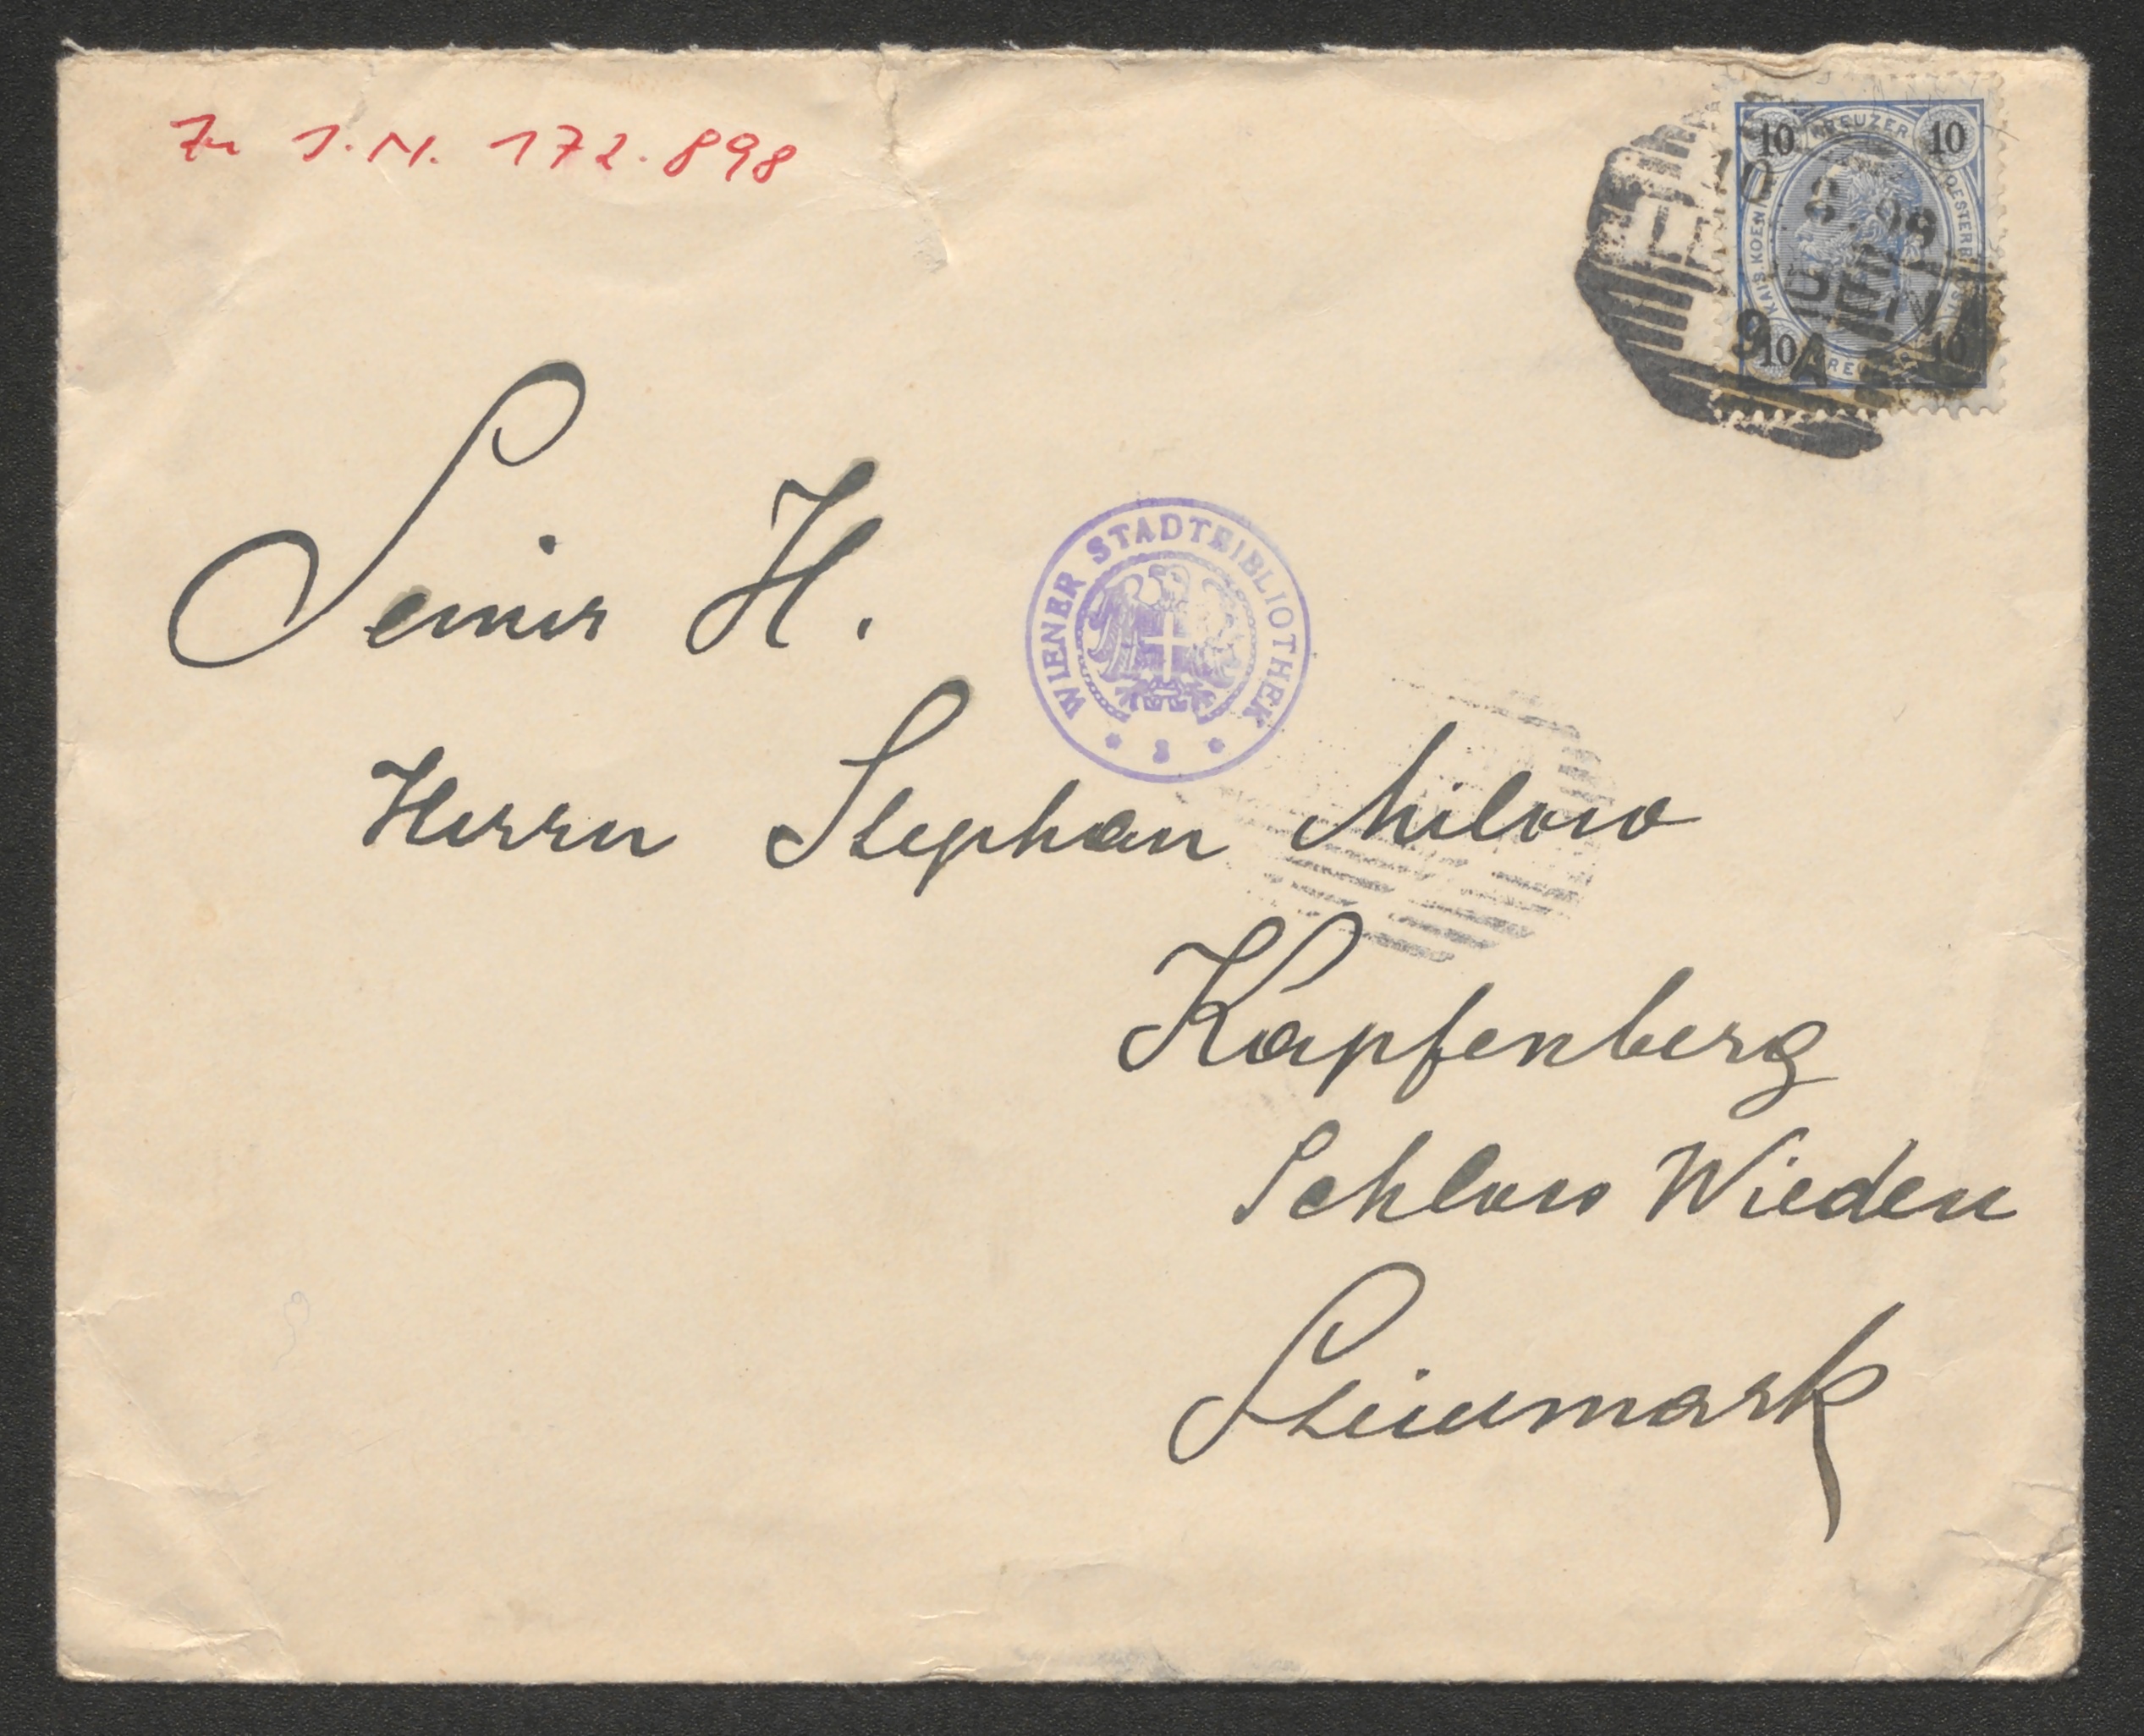 Zu I.N. 172.898
10 KREUZER 10
KAIS. KOEN. OESTERR.
10 8 98
WIEN
9 A
10 10
Seiner H.
WIENER STADTBIBLIOTHEK
* 8 *
Herrn Stephan Milow
Kapfenberg
Schloss Wieden
Steiermark